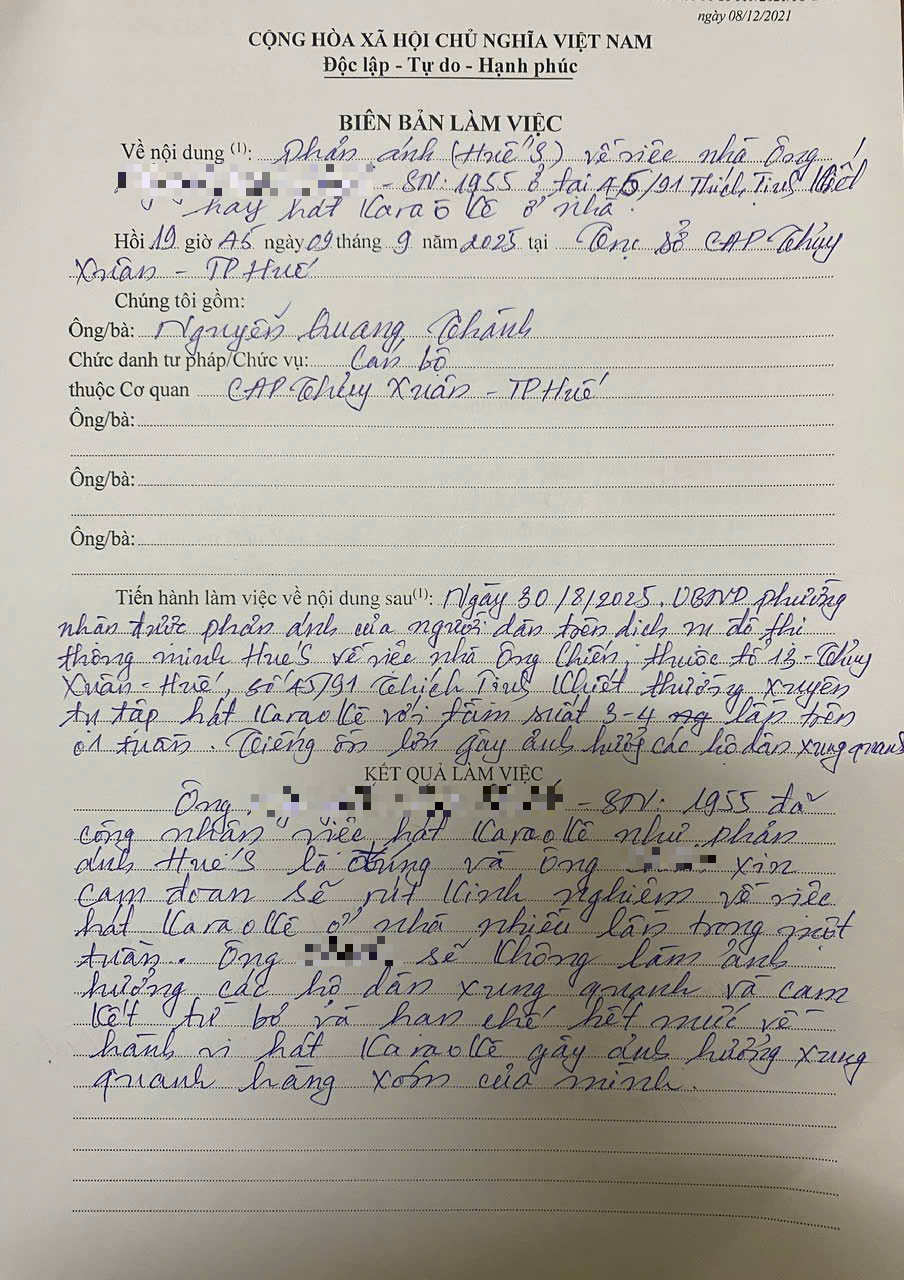 ngày 08/12/2021
CỘNG HÒA XÃ HỘI CHỦ NGHĨA VIỆT NAM
Độc lập - Tự do - Hạnh phúc
BIÊN BẢN LÀM VIỆC
Về nội dung (1): Phản ánh (Huế S) về việc nhà Ông
- SN: 1955 ở tại 45/91 Thích Tịnh Khiết
hay hát Karaokê ở nhà.
Hồi 19 giờ 45 ngày 09 tháng 9 năm 2025 tại Trụ sở CAP Thủy
Xuân - TP Huế
Chúng tôi gồm:
Ông/bà: Nguyễn Quang Thành
Chức danh tư pháp/Chức vụ: Cán bộ
thuộc Cơ quan CAP Thủy Xuân - TP Huế
Ông/bà:
Ông/bà:
Ông/bà:
Tiến hành làm việc về nội dung sau(1): Ngày 30/8/2025. UBND phường
nhận được phản ánh của người dân trên dịch vụ đô thị
thông minh Huế S về việc nhà Ông Chiến, thuộc tổ 13 - Thủy
Xuân - Huế, số 45/91 Thích Tịnh Khiết thường xuyên
tụ tập hát Karaokê với tầm suất 3-4 lần trên
01 tuần. Tiếng ồn lớn gây ảnh hưởng các hộ dân xung quanh
KẾT QUẢ LÀM VIỆC
Ông - SN: 1955 đã
công nhận việc hát Karaokê như phản
ánh Huế S là đúng và Ông xin
cam đoan sẽ rút kinh nghiệm về việc
hát Karaokê ở nhà nhiều lần trong một
tuần. Ông sẽ không làm ảnh
hưởng các hộ dân xung quanh và cam
kết từ bỏ và hạn chế hết mức về
hành vi hát Karaokê gây ảnh hưởng xung
quanh hàng xóm của mình.